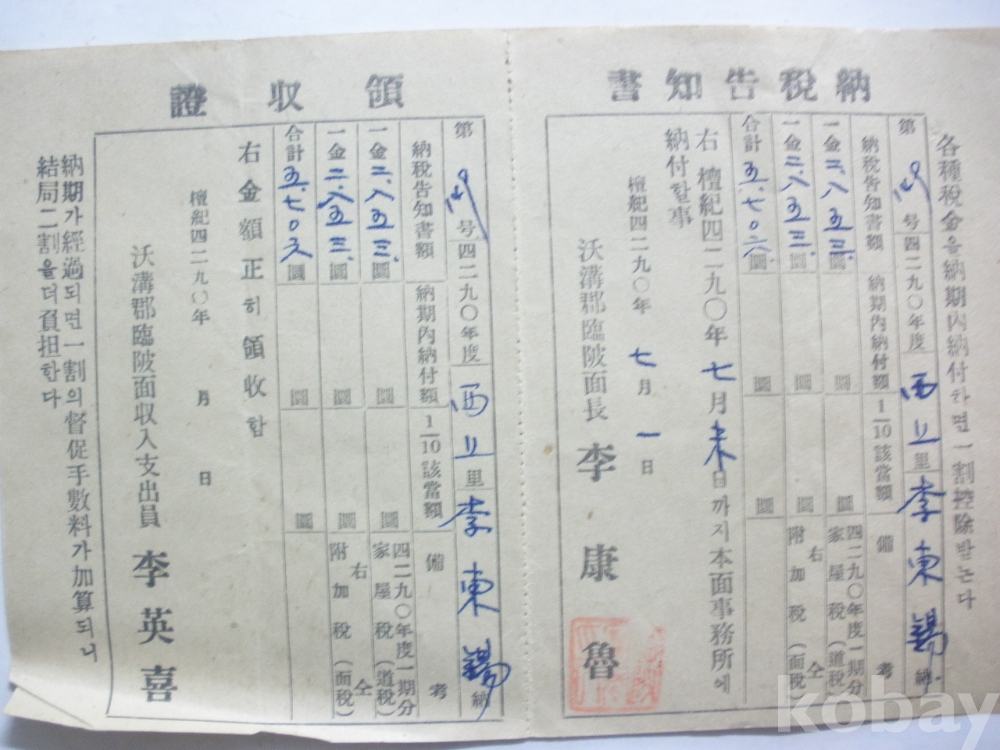 納稅告知書
各種稅金을納期內納付하면一割控除받는다
第 号 四二九〇年度 西上里 李東錫 納
納稅告知書額 納期內納付額 1/10該當額 備考
一金二、八五三、圓 圓 圓 四二九〇年度一期分家屋稅(道稅)
一金二、八五三、圓 圓 圓 右仝附加稅(面稅)
合計五、七〇六圓 圓 圓
右 檀紀四二九〇年七月末日까지本面事務所에
納付할事
檀紀四二九〇年 七月 一日
沃溝郡臨陂面長 李康魯
領収證
第 号 四二九〇年度 西上里 李東錫 納
納稅告知書額 納期內納付額 1/10該當額 備考
一金二、八五三、圓 圓 圓 四二九〇年度一期分家屋稅(道稅)
一金二、八五三、圓 圓 圓 右仝附加稅(面稅)
合計五、七〇六圓 圓 圓
右金額正히領收함
檀紀四二九〇年 月 日
沃溝郡臨陂面収入支出員 李英喜
納期가經過되면一割의督促手數料가加算되니
結局二割을더負担한다
kobay